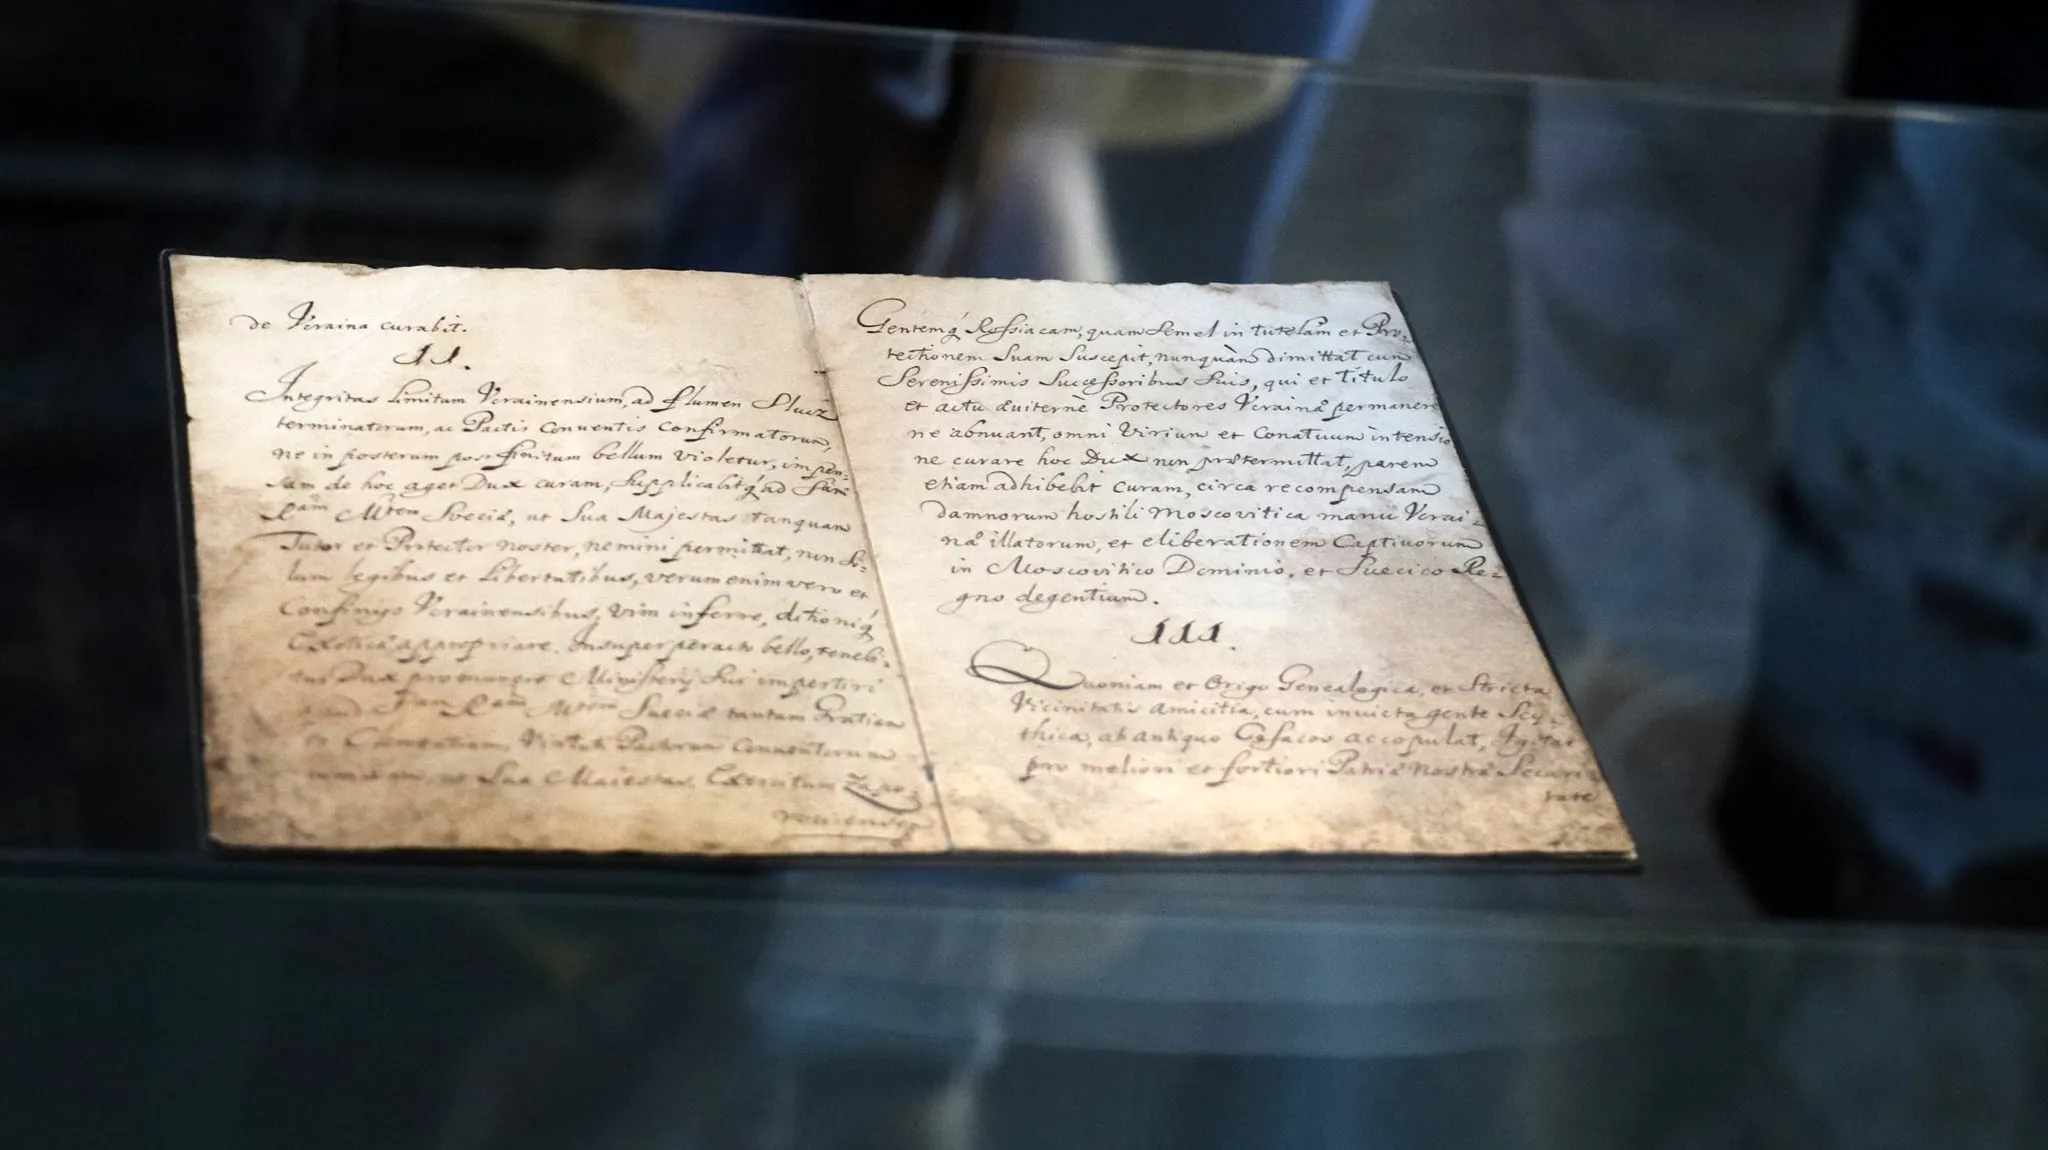 de Vcraina curabit.
II.
Integritas Limitum Vcrainensium, ad flumen Slucz
terminatorum, ac Pactis Conventis Confirmatorum,
ne in posterum post finitum bellum violetur, impen-
sam de hoc aget Dux curam, Supplicabitq́ ad
Rám Mtem Sveciæ, ut Sua Majestas tanquam
Tutor et Protector noster, nemini permittat, non So-
lum legibus et Libertatibus, verum enim vero et
Confinijs Vcrainensibus, vim inferre, ditioniq́
Exoticæ appropriare. Insuper peracto bello, tenebi-
tur Dux pro munere Ministerij Sui impertiri
Rám Mtem Sveciæ tantam Gratiam
et Clementiam, Virtute Pactorum Conventorum
ut Sua Maiestas, Exercitum Zapo-
roviensem
Gentemq́ Rossiacam, quam Semel in tutelam et Pro-
tectionem Suam Suscepit, nunquàm dimittat cum
Serenissimis Successoribus Suis, qui et Titulo
et actu æviternè Protectores Vcrainæ permanere
ne abnuant, omni Virium et Conatuum intensio
ne curare hoc Dux non prætermittat, parem
etiam adhibebit curam, circa recompensam
damnorum hostili Moscovitica manu Vcrai-
næ illatorum, et eliberationem Captivorum
in Moscovitico Dominio, et Suecico Re-
gno degentium.
III.
Quoniam et Origo Genealogica, et Stricta
Vicinitatis amicitia, cum invicta gente Scy-
thica, ab antiquo Cosacos accopulat, Igitur
pro meliori et fortiori Patriæ Nostræ Securi-
tate